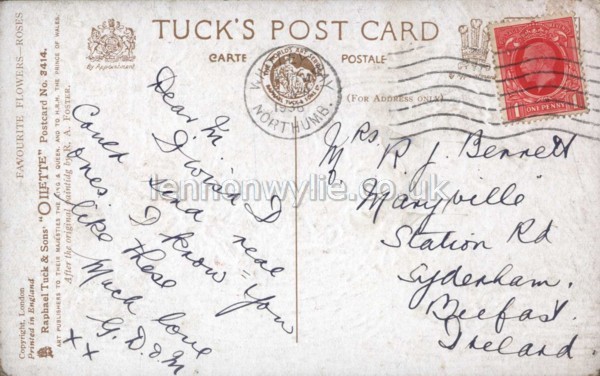 TUCK'S POST CARD
CARTE POSTALE
By Appointment
(FOR ADDRESS ONLY)
FAVOURITE FLOWERS—ROSES
Raphael Tuck & Sons' "OILETTE" Postcard No. 3414.
ART PUBLISHERS TO THEIR MAJESTIES THE KING & QUEEN, AND TO H.R.H. THE PRINCE OF WALES.
After the original painting by R. A. FOSTER.
Copyright, London
Printed in England
THE WORLD'S ART SERVICE
NORTHUMB.
1 ONE PENNY 1
Dear M.
I wish I
could send real
ones. I know you
like these
Much love
G. D & M
x x
Mrs R. J. Bennett
Maryville
Station Rd
Sydenham.
Belfast.
Ireland.
lennonwylie.co.uk